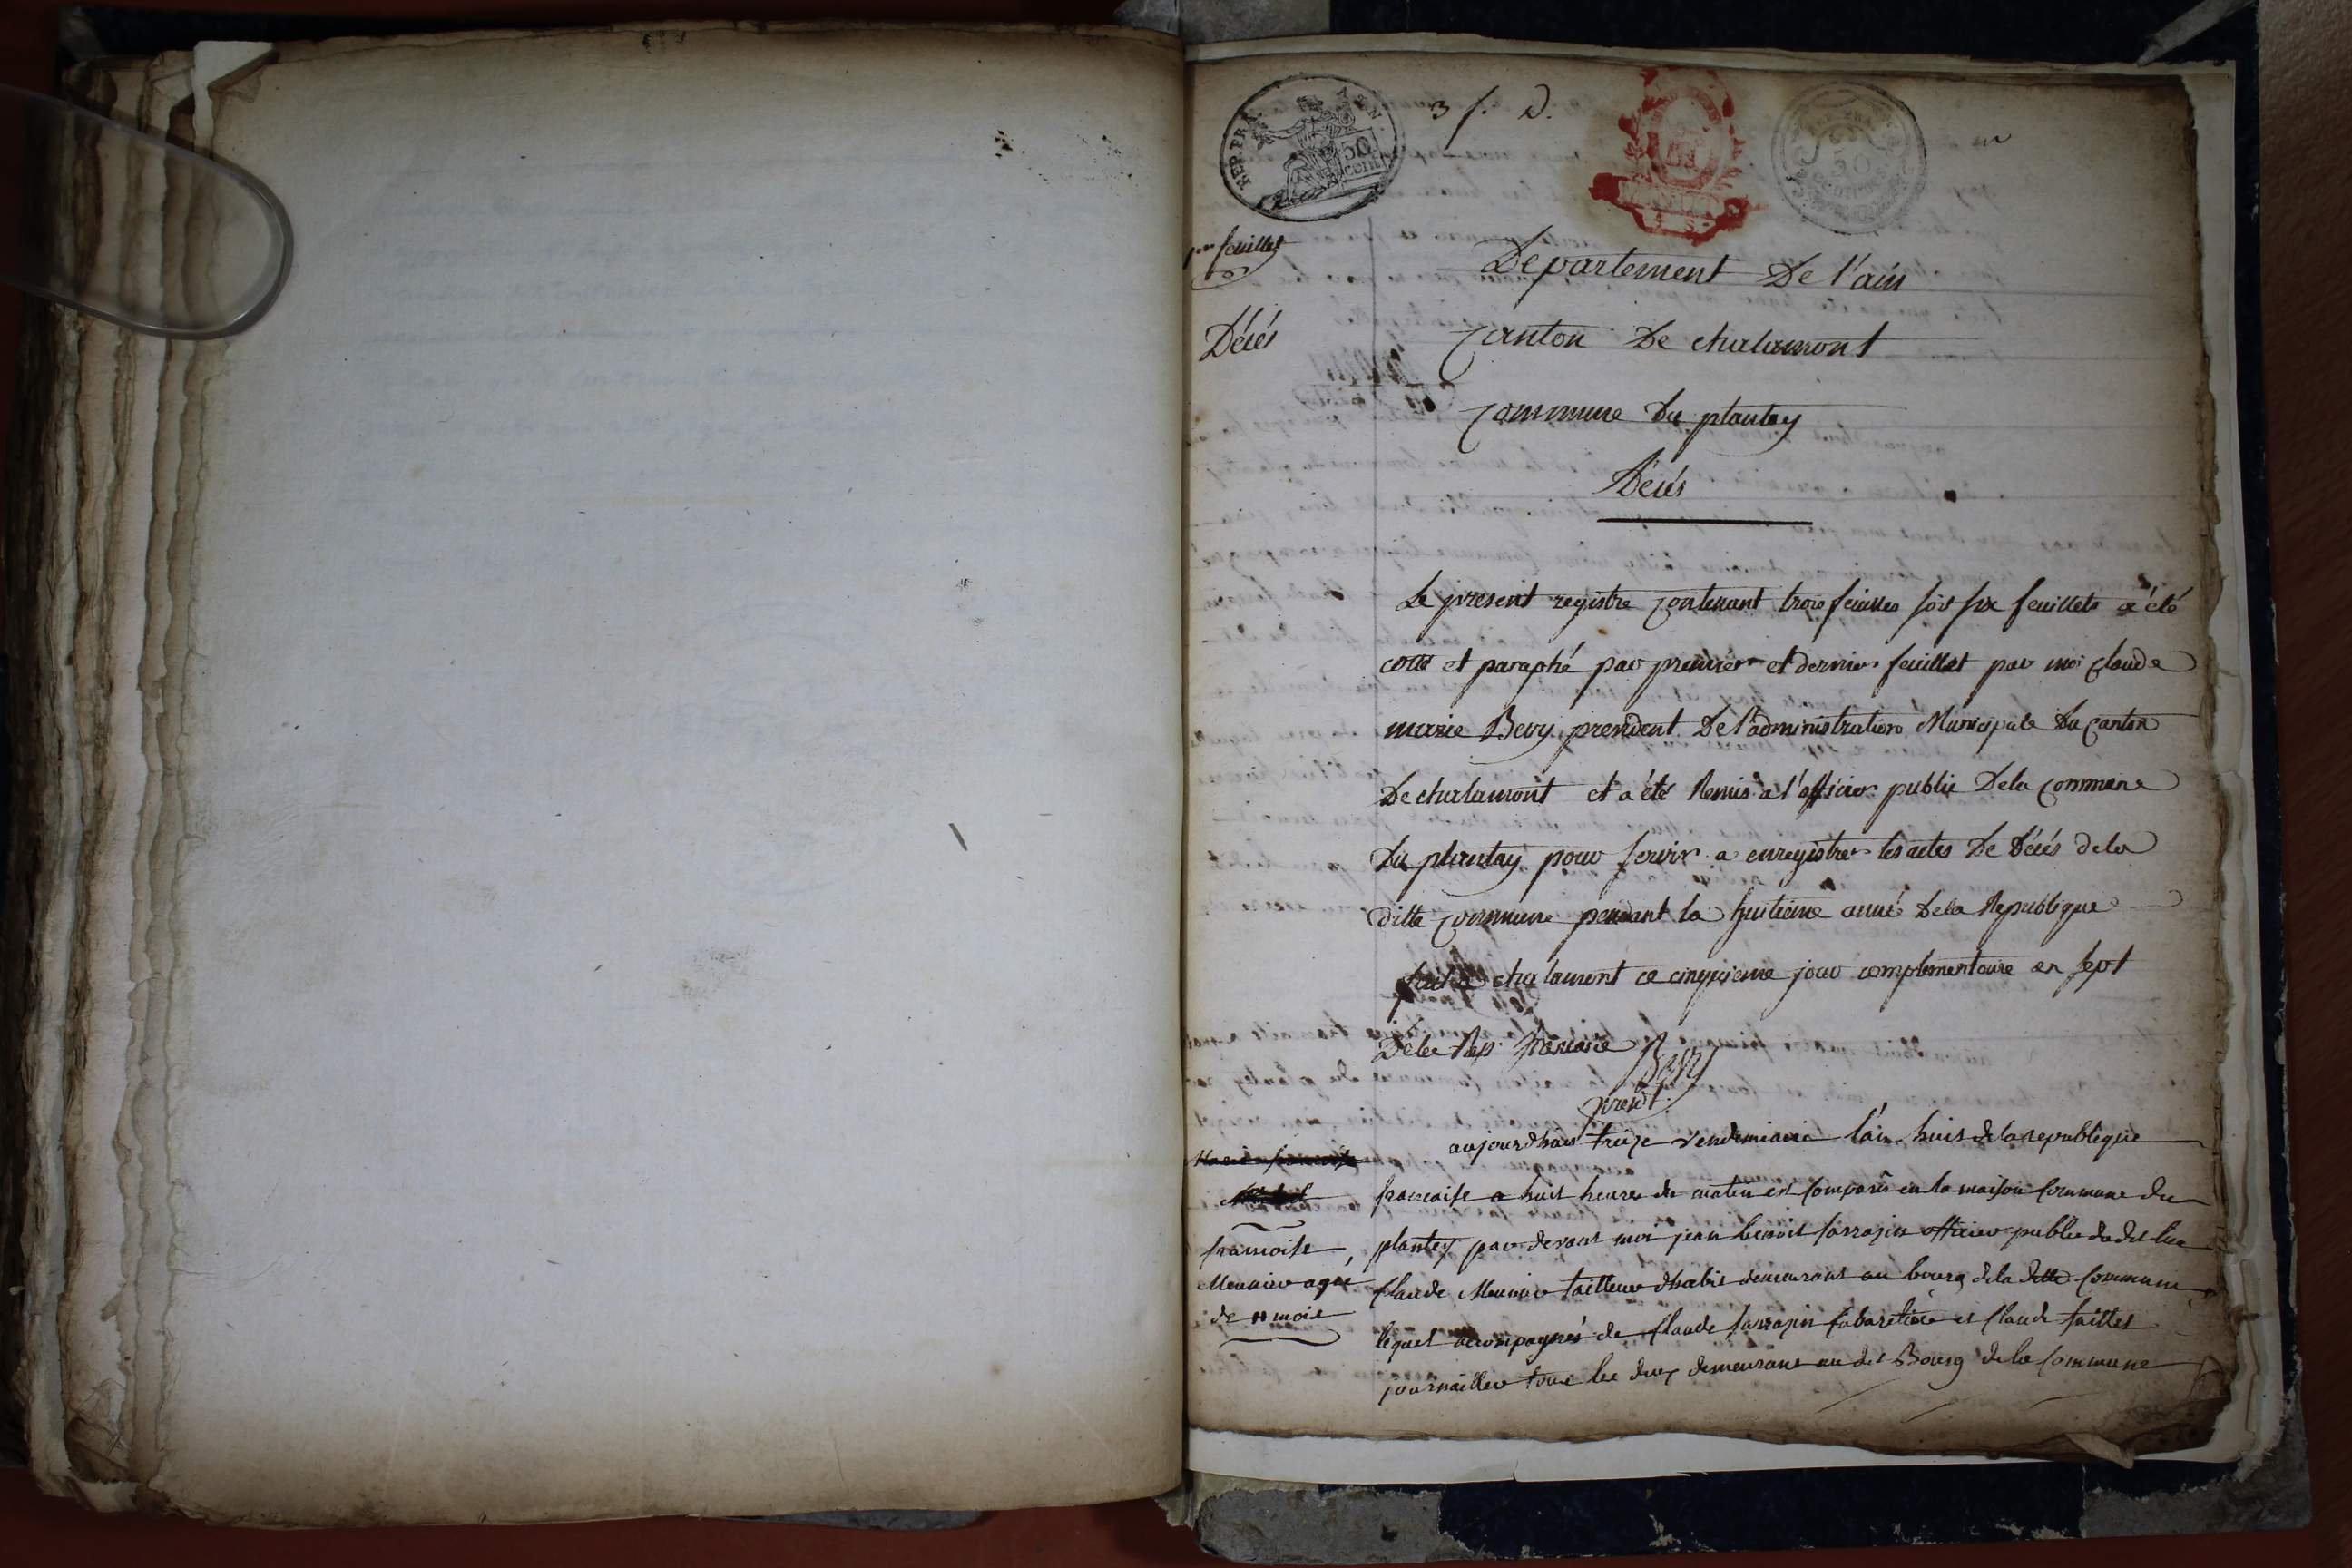 3 f. D.
REP. FRA.
50
CENT
50
1er feuillet
Departement De l'ain
Décés
Canton De chalamont
Commune Du plantay
Décés
Le present registre contenant trois feuilles soit six feuillets a été
coté et paraphé par premier et dernier feuillet par moi Claude
marie Bevy president De l'administration Municipale Du Canton
De chalamont et a été Remis a l'officier public De la Commune
Du plantay pour servir a enregistrer les actes De Décés de la
ditte Commune pendant la huitieme année De la Republique
fait a chalamont ce cinquieme jour complementaire an sept
De la Rep. francaise Bevy
presdt.
aujourdhui treize vendemiaire l'an huit de la republique
francoise a huit heures du matin est comparu en la maison Commune du
plantey par devant moi jean benoit sarrazin officier public du dit lieu
francoise
Claude Meunier tailleur dhabit demeurant au bourg de la ditte Commune
Meunier agée
de 11 mois
lequel acompagnés de Claude sarrazin Cabaretier et Claude
journallier tous les deux demeurant au dit Bourg de la Commune